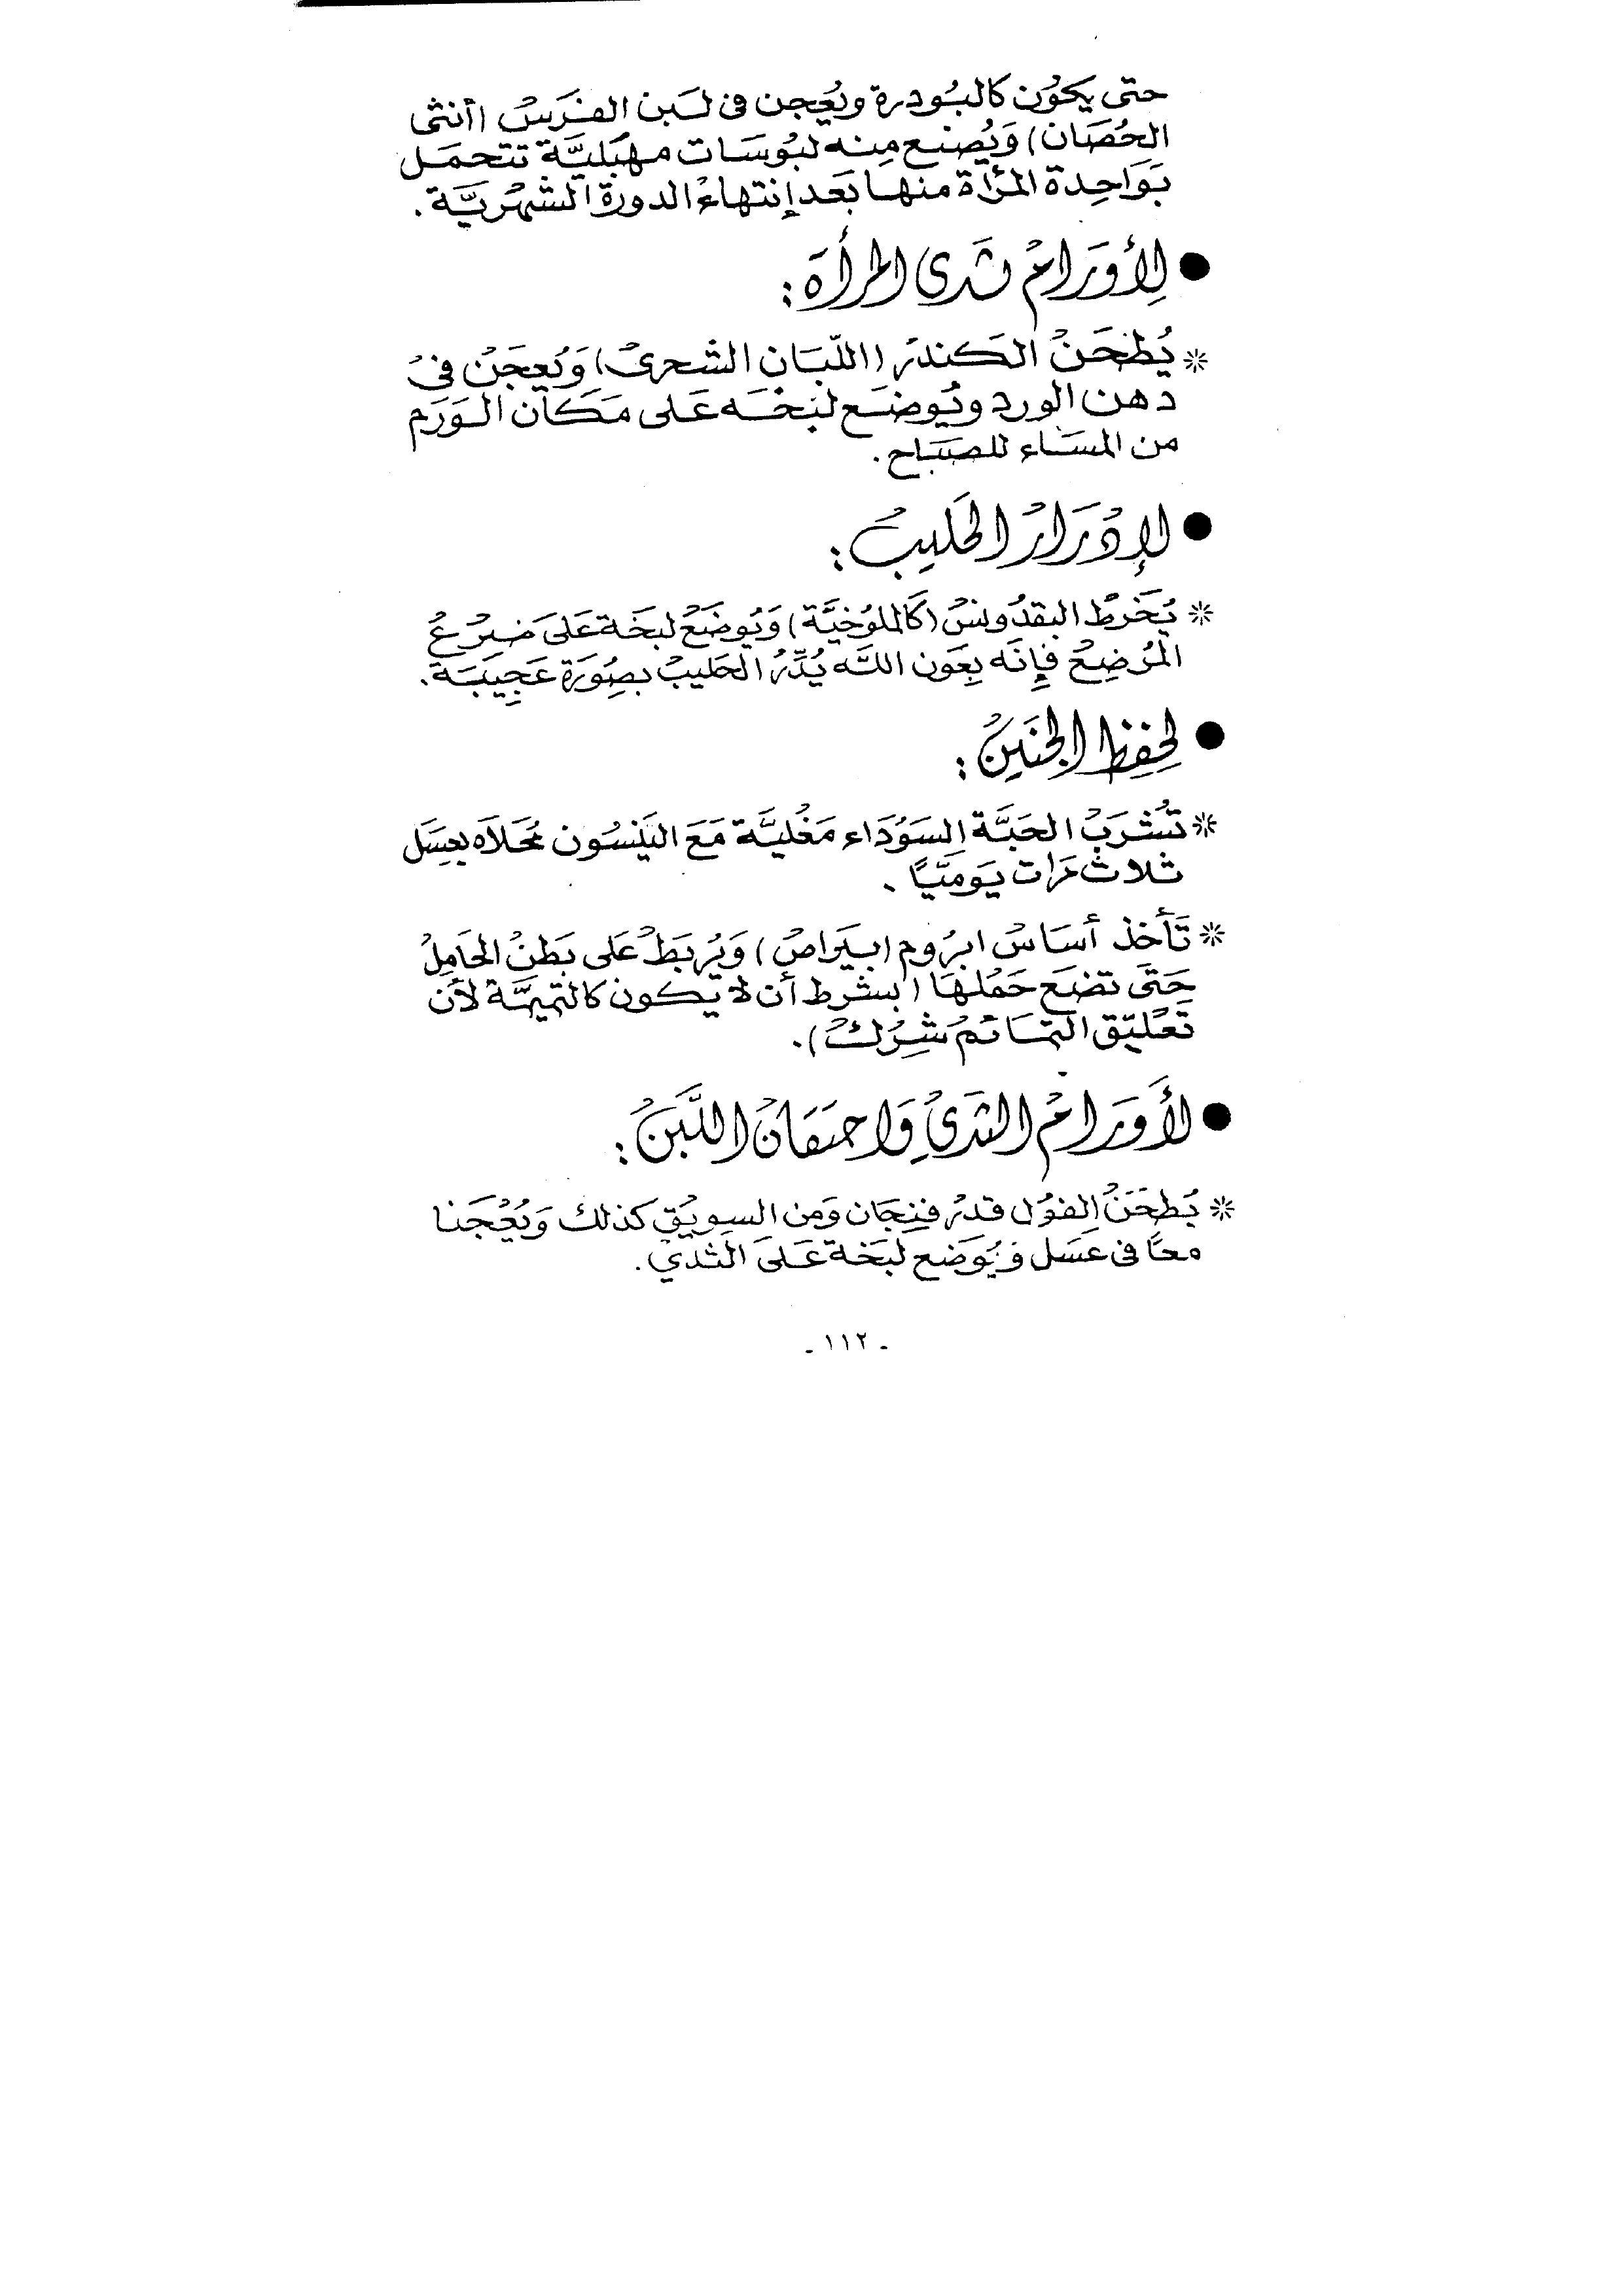 حتى يكون كالبودرة ويُعجن فى لبن الفرس (أنثى
الحُصَان) وَيُصنع مِنه لبُوسَات مهبَليَّة تتحمَل
بَوَاحِدة المرأة منها بَعَد إنتهاء الدورة الشهْريَّة .
● لِأورَامْ ثدى المرأة :
* يُطحَنْ الكندر (اللّبَان الشحرىْ) وَيُعجَنْ فىْ
دهن الورد ويُوضَع لبْخَه عَلى مَكَان الوَرَم
من المسَاء للصبَاح .
● لإدْرَارْ الحَليبْ :
* يُخَرطْ البقدُونسْ (كَالملوُخيَّة) وَيُوضَعْ لبخَة عَلىَ ضِرْعْ
المرْضِعْ فإِنَه بِعَون اللَه يُدِّرْ الحَليبْ بصِورَة عَجِيبَة .
● لحِفِظ الجنَينْ :
* تُشرَبْ الحَبَّة السَوْدَاء مَغْليَّة مَعَ اليَنسُون مُحَلَاه بعسَل
ثلاث مرات يَومَيًا .
* تَأخذ أسَاسْ ابرُوم (بيَراصْ) وَيُربَطْ عَلى بَطنْ الحَامِلْ
حَتَى تضَع حَمْلهَا (بشرط أن لا يكون كالتميمَّة لأن
تَعْليّق التمَائمْ شِرْكْ) .
● لأَورَامْ الثدَىْ وَاحتقَانْ اللَّبَنْ :
* يُطحَنْ الفوُل قدرْ فنِجَان وَمن السويْق كذلك وَيُعْجَنا
معاً فى عَسَل وَيُوَضع لبَخة عَلىَ الثديْ .
- ١١٢ -